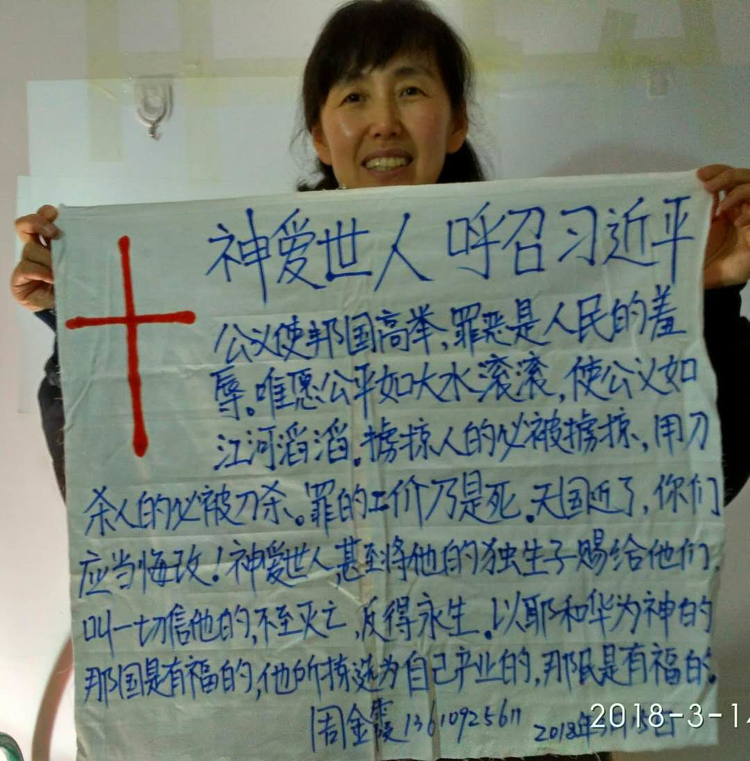 神爱世人 呼召习近平
公义使邦国高举,罪恶是人民的羞
辱。唯愿公平如大水滚滚,使公义如
江河滔滔。掳掠人的必被掳掠,用刀
杀人的必被刀杀。罪的工价乃是死。天国近了,你们
应当悔改!神爱世人,甚至将他的独生子赐给他们,
叫一切信他的,不至灭亡,反得永生。以耶和华为神的
那国是有福的,他所拣选为自己产业的,那民是有福的。
周金霞 13610925611 2018年3月15日
2018-3-14